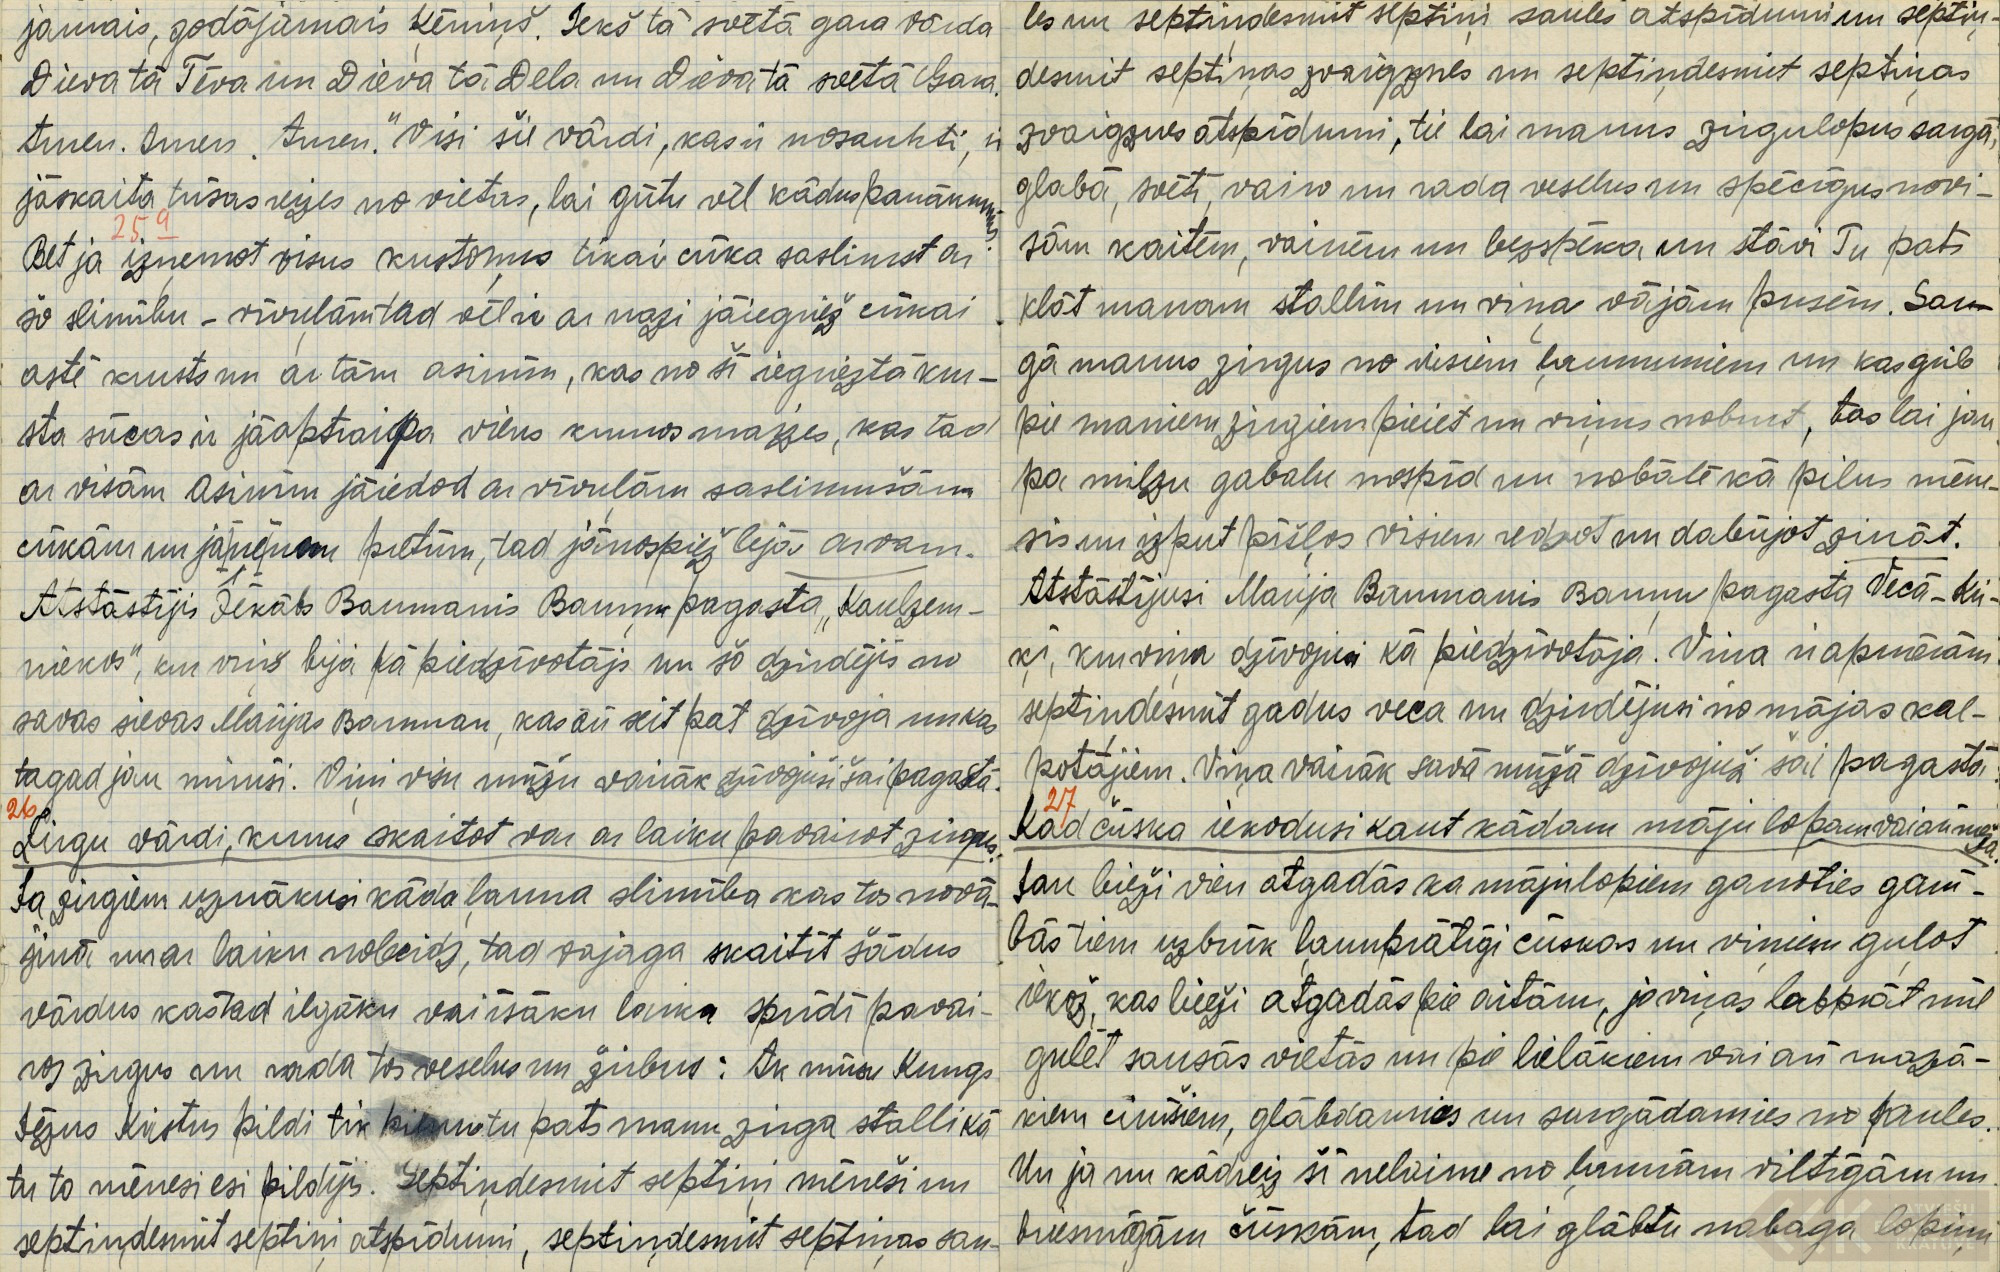 jamais, godājamais Ķēniņš. Iekš tā svētā gara vārda
Dieva tā Tēva un Dieva tā Dēla un Dieva tā svētā Gara.
Amen. Amen. Amen." Visi šie vārdi, kas ir nosaukti, ir
jāskaita trīsas reizes no vietas, lai gūtu vēl kādus panākumus.
25 9
Bet ja izņemot visus kustoņus tikai cūka saslimst ar
šo slimību – vīvuļām tad vēl ir ar nazi jāiegriež cūkai
astē krusts un ar tām asinīm, kas no šī iegrieztā kru-
sta sūcas ir jāaptraipa viens kumos maizes, kas tad
ar visām asinīm jāiedod ar vīvuļām saslimušām
cūkām un jāņem pretīm, tad jānospiež lejā ar varu.
Atstāstījis Jēkabs Baumanis Bauņu pagasta „Kaulzem-
niekos", kur viņš bija kā piedzīvotājs un šo dzirdējis no
savas sievas Marijas Bauman, kas arī šeit pat dzīvoja un kas
tagad jau mirusi. Viņi visu mūžu vairāk dzīvojuši šai pagastā.
26
Zirgu vārdi, kurus skaitot var ar laiku pavairot zirgus.
Ja zirgiem uznākusi kāda ļauna slimība kas tos novā-
jina un ar laiku nobeidz, tad vajaga skaitīt šādus
vārdus kas tad ilgāku vai īsāku laika sprīdi pavai-
ro zirgus un rada tos veselus un žirbus: Ak mūsu Kungs
Jēzus Kristus pildi tik pilnu tu pats manu zirga stalli kā
tu to mēnesi esi pildījis. Septiņdesmit septiņi mēneši un
septiņdesmit septiņi atspīdumi, septiņdesmit septiņas sau-
les un septiņdesmit septiņi saules atspīdumi un septiņ-
desmit septiņas zvaigznes un septiņdesmit septiņas
zvaigznes atspīdumi, tie lai manus zirgulopus sargā,
glabā, svētī, vairo un rada veselus un spēcīgus no vi-
sām kaitēm, vainēm un bezspēka un stāvi Tu pats
klāt manam stallim un viņa vājām pusēm. Sar-
gā manus zirgus no visiem ļaunumiem un kas grib
pie maniem zirgiem pieiet un viņus noburt, tas lai jau
pa milzu gabalu nospīd un nobālē kā pilns mēne-
sis un izput pīšļos visiem redzot un dabūjot zināt.
Atstāstījusi Marija Baumanis Bauņu pagasta Vecā-Ķir-
ķī, kur viņa dzīvojusi kā piedzīvotāja. Viņa ir apmēram
septiņdesmit gadus veca un dzirdējusi no mājas kal-
potājiem. Viņa vairāk savā mūžā dzīvojusi šai pagastā.
27
Kad čūska iekodusi kaut kādam māju lopam vai arī mežā.
Jau bieži vien atgadās ka mājulopiem ganoties gani-
bās tiem uzbrūk ļaunprātīgi čūskas un viņiem guļot
iekož, kas bieži atgadās pie aitām, jo viņas labprāt mīl
gulēt sausās vietās un pie lielākiem vai arī mazā-
kiem ciņišiem, glābdamies un sargādamies no saules.
Un ja nu kādreiz šī nelaime no ļaunām viltīgām un
briesmīgām čūskām, tad lai glābtu nabaga lopiņu